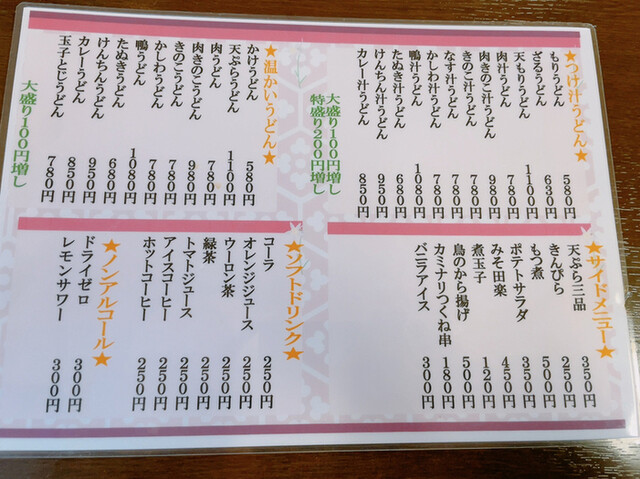 ★つけ汁うどん★
もりうどん 580円
ざるうどん 630円
天もりうどん 1100円
肉汁うどん 780円
肉きのこ汁うどん 980円
きのこ汁うどん 780円
なす汁うどん 780円
かしわ汁うどん 780円
鴨汁うどん 1080円
たぬき汁うどん 680円
けんちん汁うどん 950円
カレー汁うどん 850円
大盛り100円増し
特盛り200円増し
★温かいうどん★
かけうどん 580円
天ぷらうどん 1100円
肉うどん 780円
肉きのこうどん 980円
きのこうどん 780円
かしわうどん 780円
鴨うどん 1080円
たぬきうどん 680円
けんちんうどん 950円
カレーうどん 850円
玉子とじうどん 780円
大盛り100円増し
★サイドメニュー★
天ぷら三品 350円
きんぴら 250円
もつ煮 500円
ポテトサラダ 350円
みそ田楽 450円
煮玉子 120円
鳥のから揚げ 500円
カミナリつくね串 180円
バニラアイス 300円
★ソフトドリンク★
コーラ 250円
オレンジジュース 250円
ウーロン茶 250円
緑茶 250円
トマトジュース 250円
アイスコーヒー 250円
ホットコーヒー 250円
★ノンアルコール★
ドライゼロ 300円
レモンサワー 300円